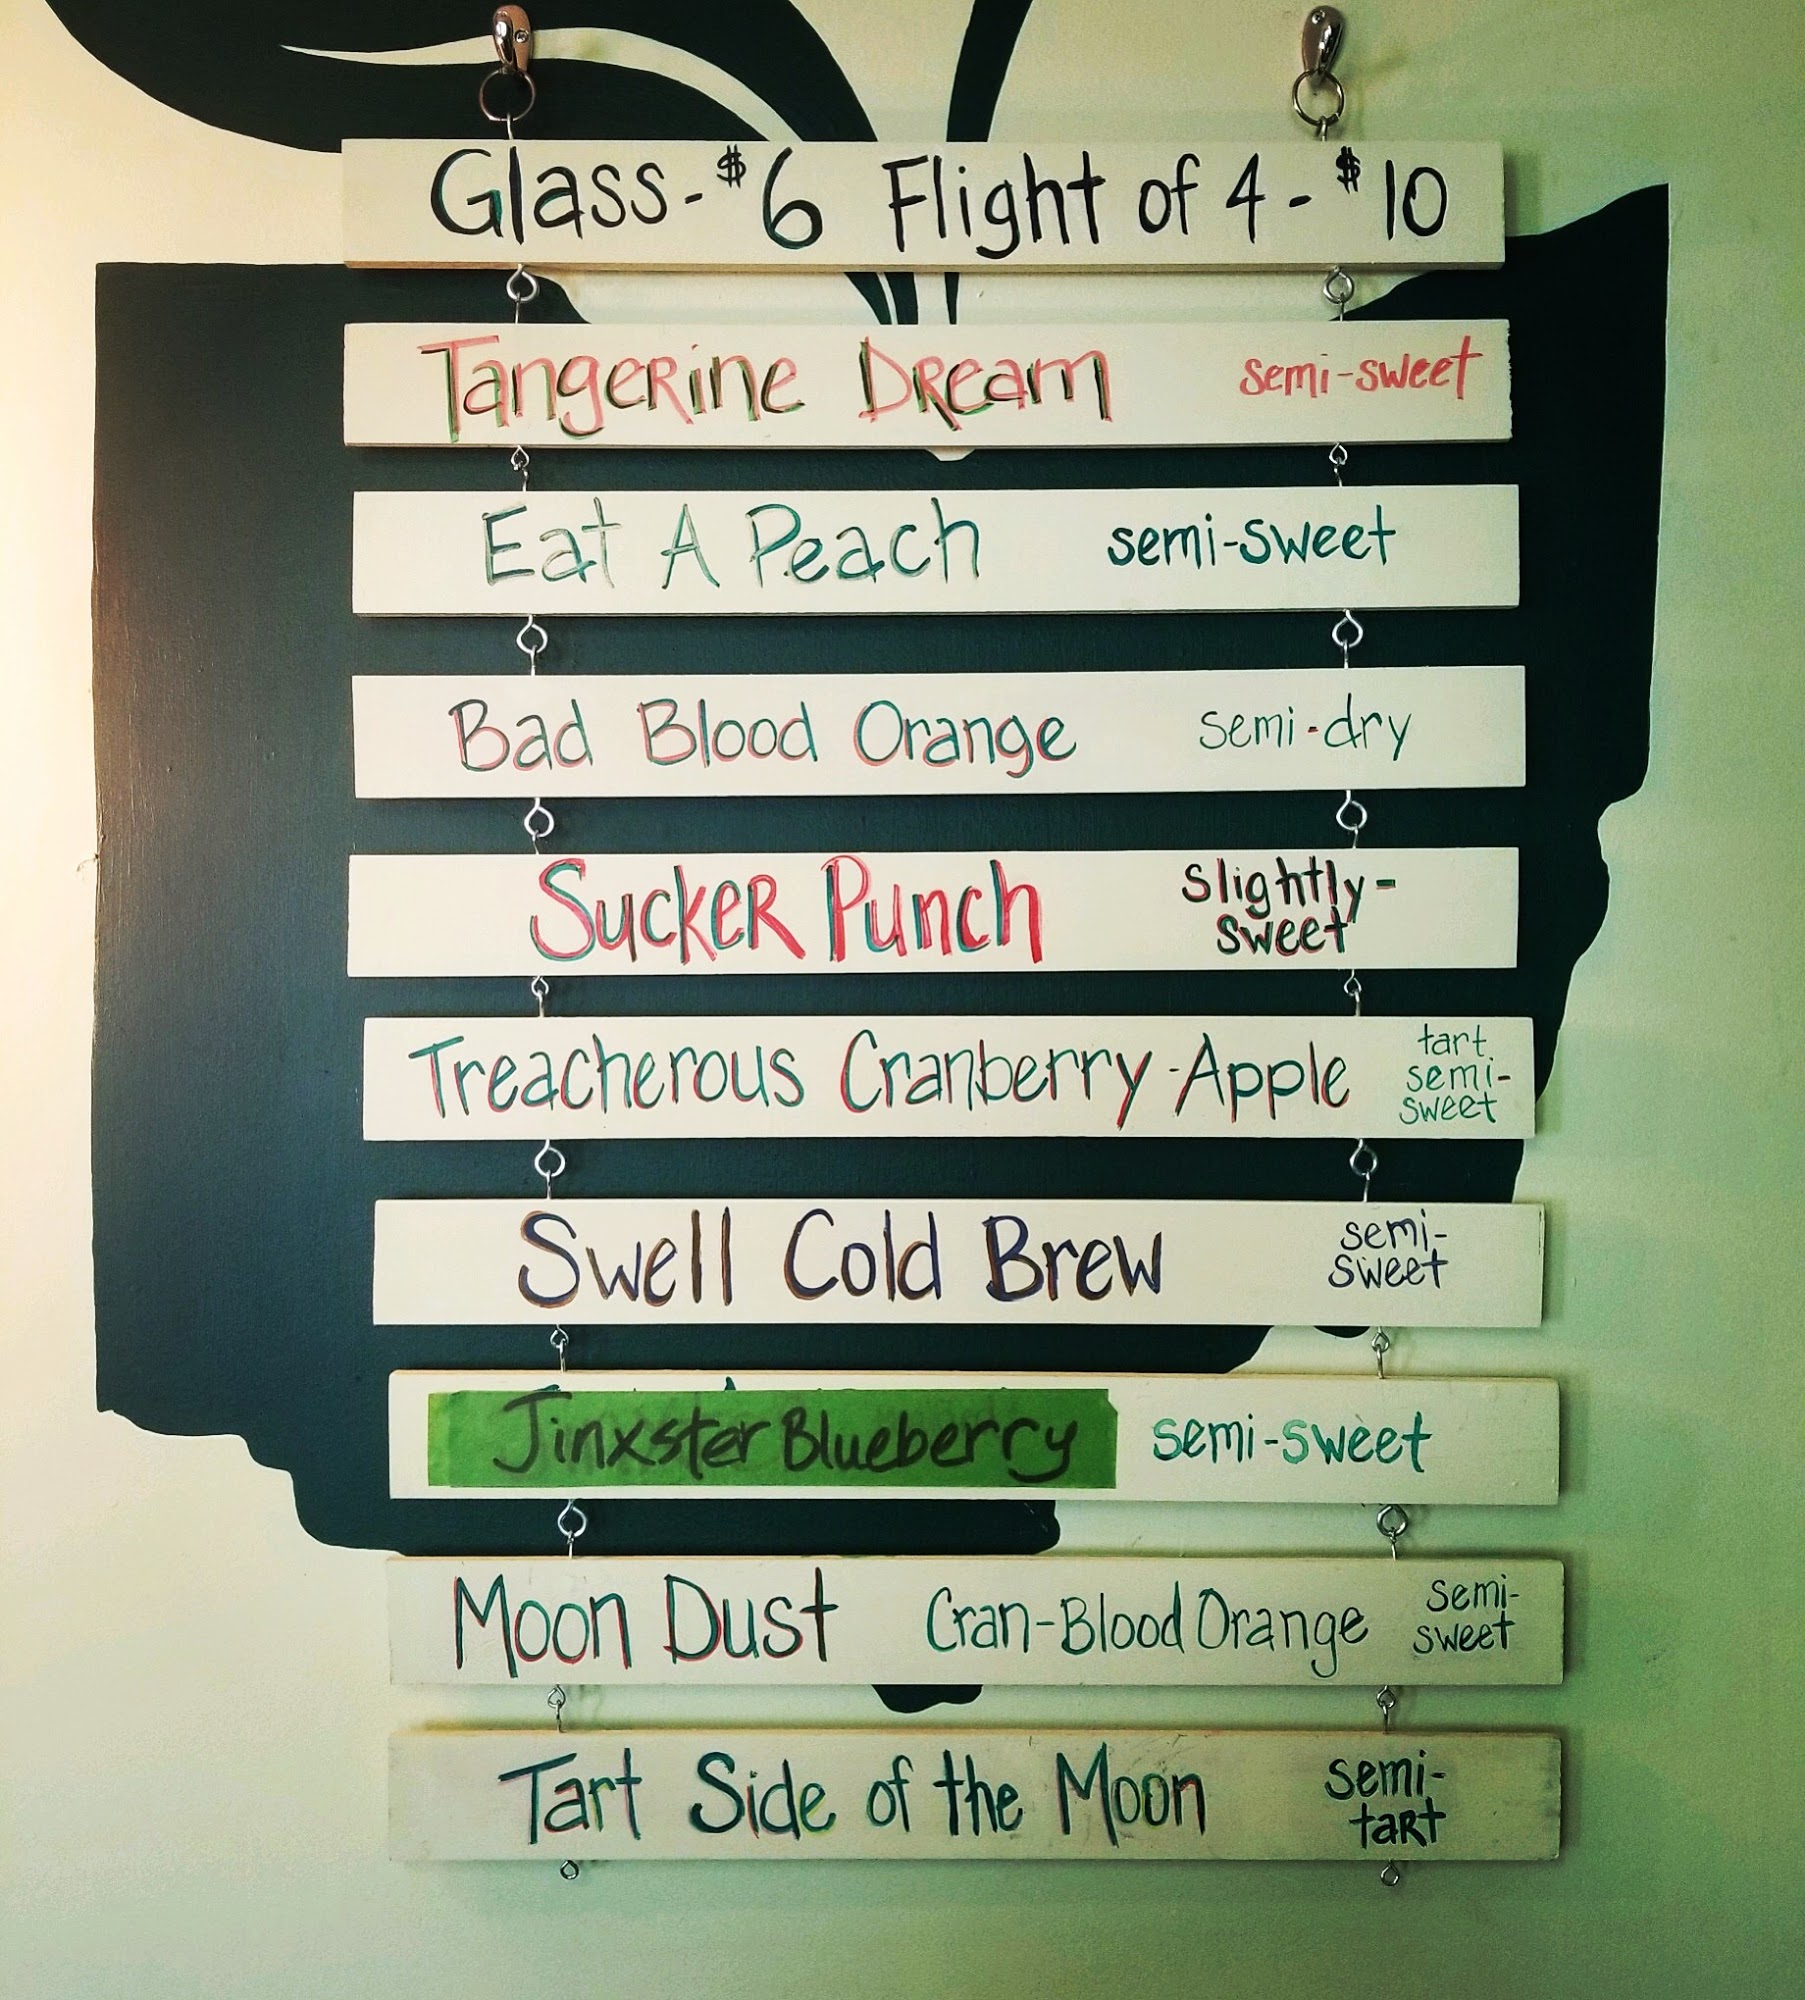 Glass-$6 Flight of 4-$10
Tangerine Dream semi-sweet
Eat A Peach semi-sweet
Bad Blood Orange semi-dry
Sucker Punch slightly-
sweet
Treacherous Cranberry-Apple tart
semi-
sweet
Swell Cold Brew semi-
sweet
Jinxster Blueberry semi-sweet
Moon Dust Cran-Blood Orange semi-
sweet
Tart Side of the Moon semi-
tart